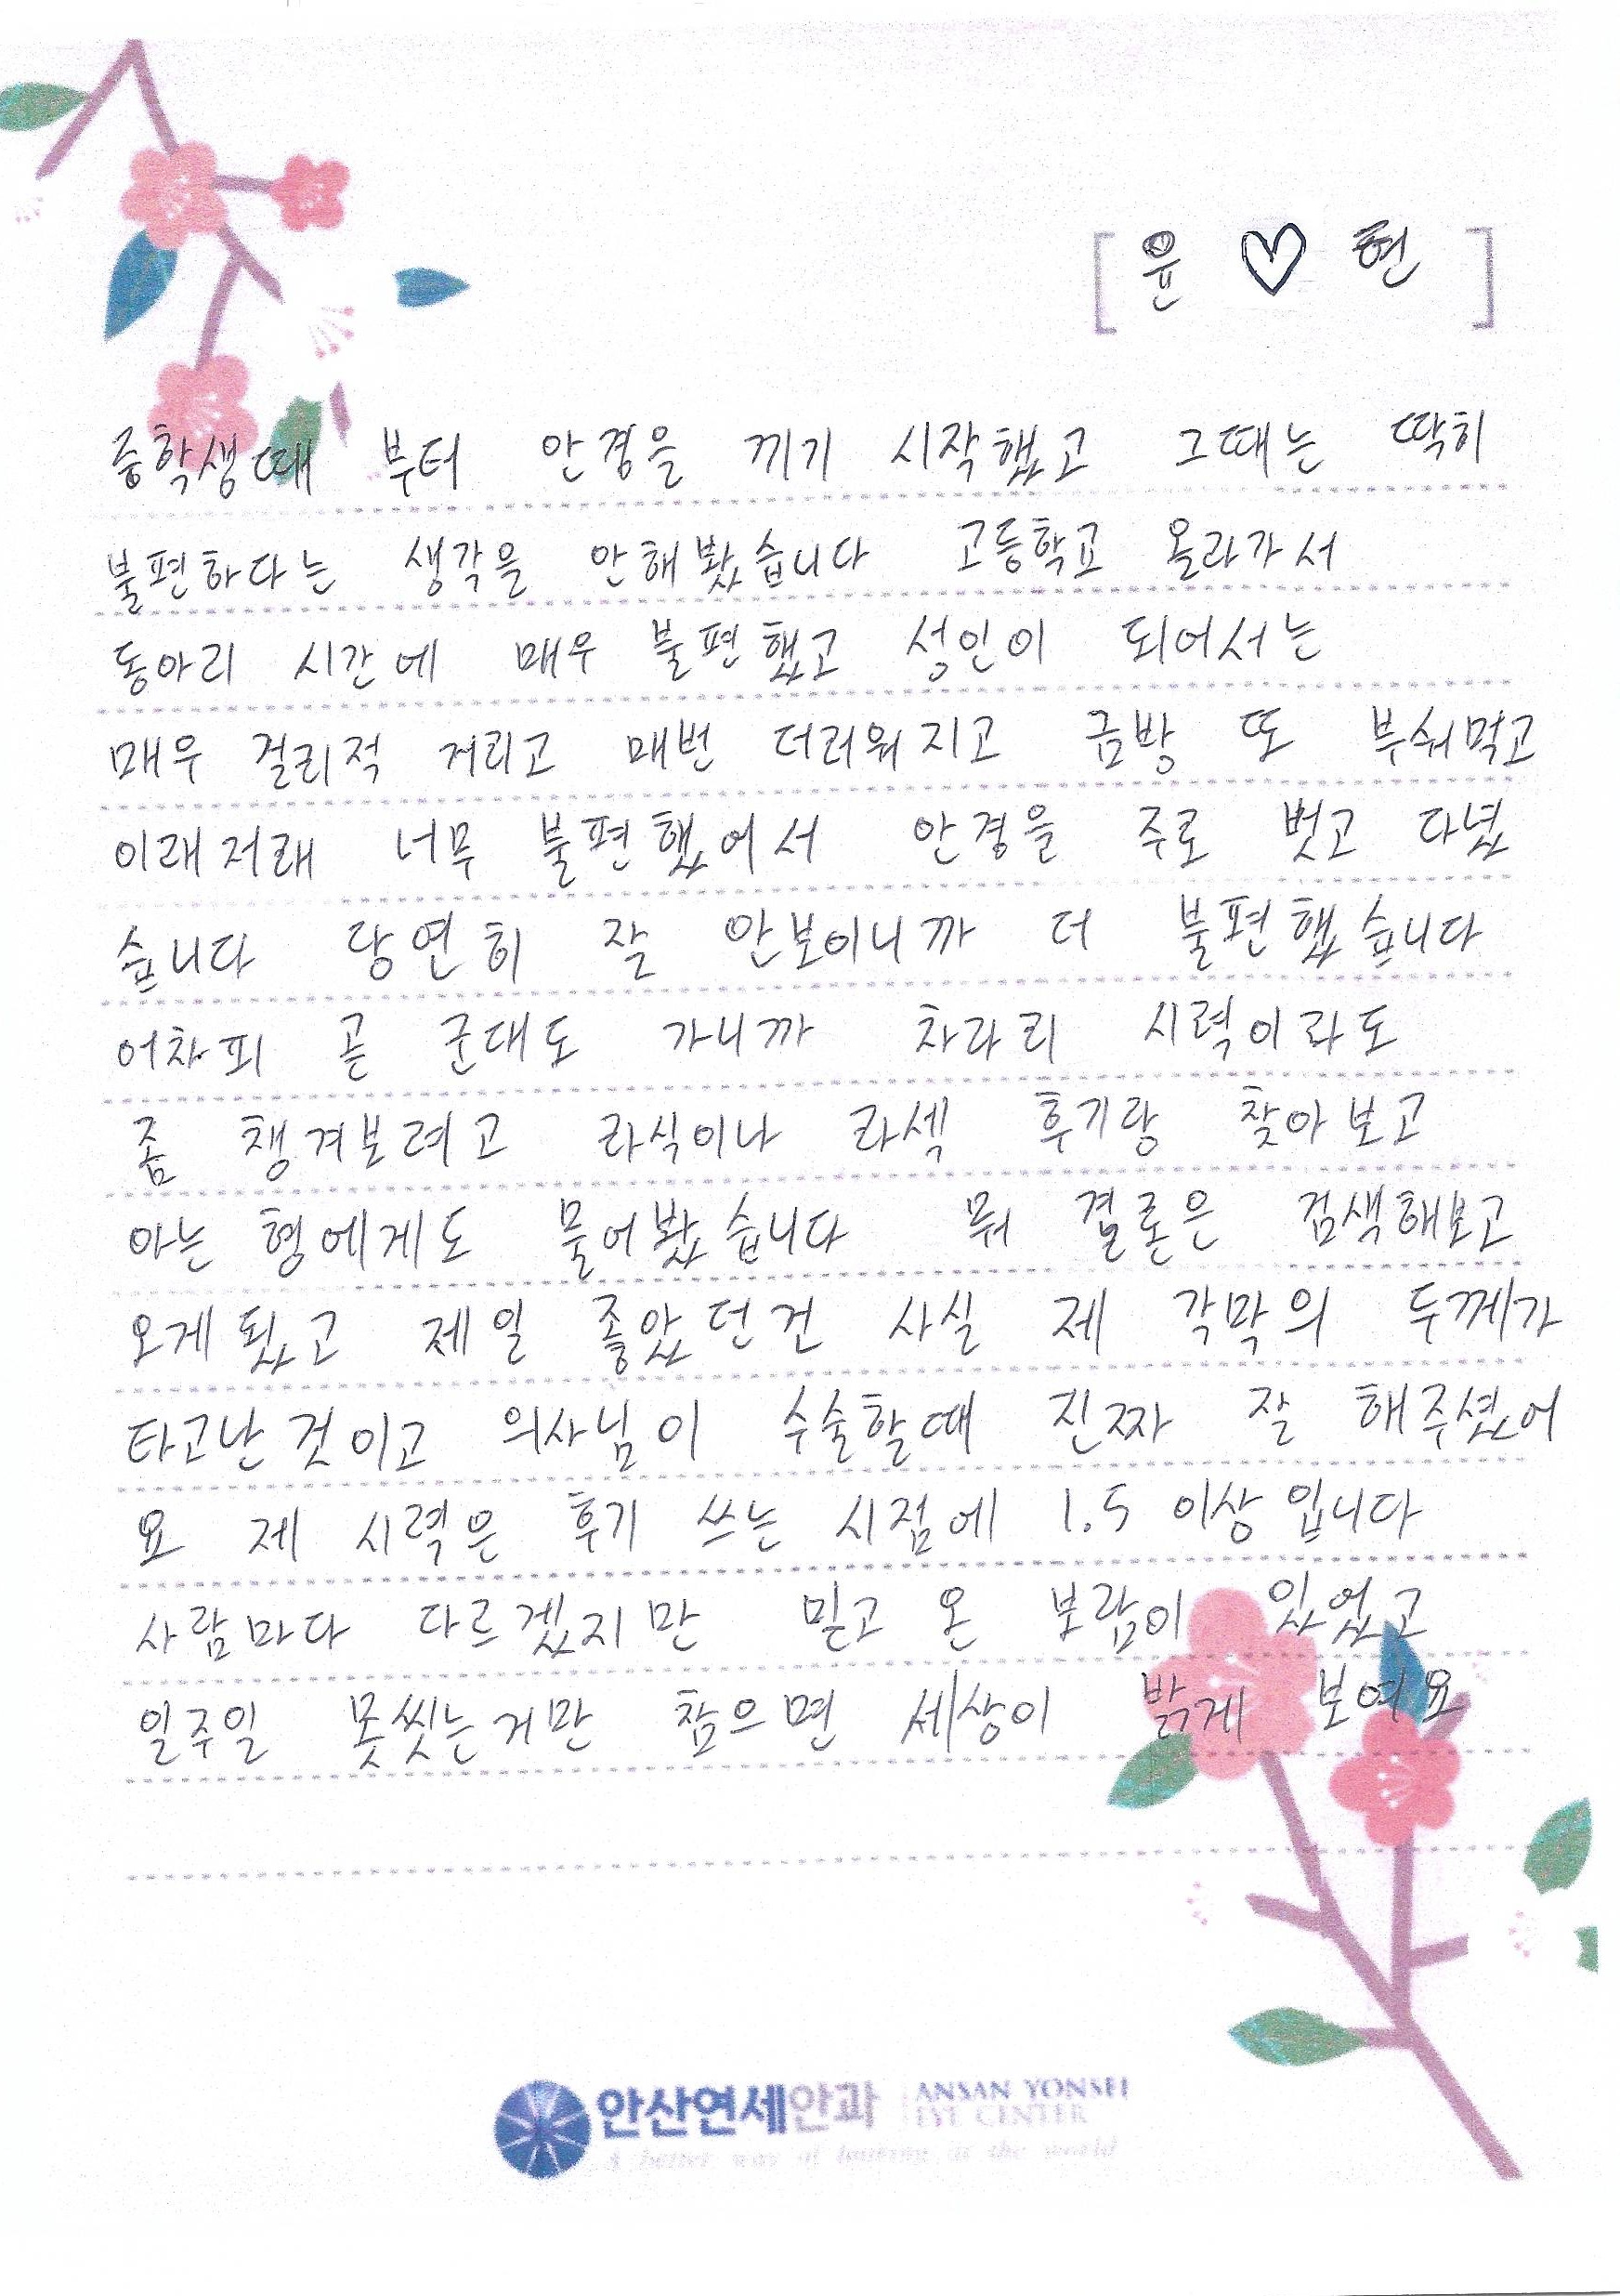 [ 윤 ♡ 현 ]
중학생때 부터 안경을 끼기 시작했고 그때는 딱히
불편하다는 생각을 안해봤습니다 고등학교 올라가서
동아리 시간에 매우 불편했고 성인이 되어서는
매우 걸리적 거리고 매번 더러워지고 금방 또 부숴먹고
이래저래 너무 불편했어서 안경을 주로 벗고 다녔
습니다 당연히 잘 안보이니까 더 불편했습니다
어차피 곧 군대도 가니까 차라리 시력이라도
좀 챙겨보려고 라식이나 라섹 후기랑 찾아보고
아는 형에게도 물어봤습니다 뭐 결론은 검색해보고
오게됐고 제일 좋았던건 사실 제 각막의 두께가
타고난것이고 의사님이 수술할때 진짜 잘 해주셨어
요 제 시력은 후기 쓰는 시점에 1.5 이상입니다
사람마다 다르겠지만 믿고 온 보람이 있었고
일주일 못씻는거만 참으면 세상이 밝게 보여요
안산연세안과 ANSAN YONSEI
EYE CENTER
A better way of looking at the world